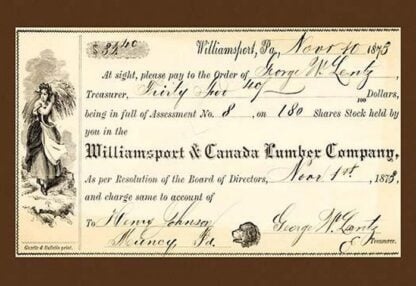 $ 32 40 Williamsport, Pa, Nov 10 1873
At sight, please pay to the Order of George W. Lentz,
Treasurer, Thirty Two 40/100 Dollars,
being in full of Assessment No. 8, on 180 Shares Stock held by
you in the
Williamsport & Canada Lumber Company,
As per Resolution of the Board of Directors, Nov 1st, 1873,
and charge same to account of
To Henry Johnson George W. Lentz
Muncy Pa. Treasurer.
Gazette & Bulletin print.